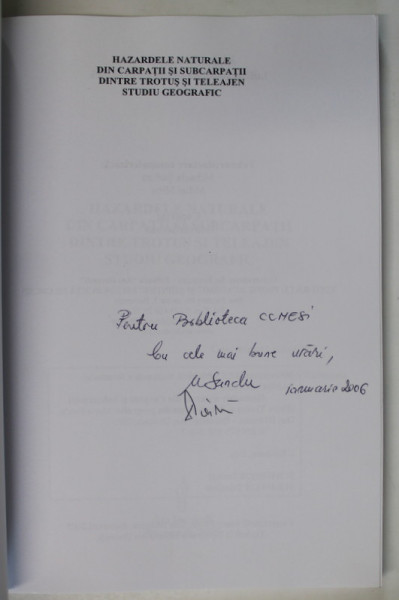 HAZARDELE NATURALE
DIN CARPAȚII ȘI SUBCARPAȚII
DINTRE TROTUȘ ȘI TELEAJEN
STUDIU GEOGRAFIC
Pentru Biblioteca CCMESI
Cu cele mai bune urări,
M Sandu
ianuarie 2006